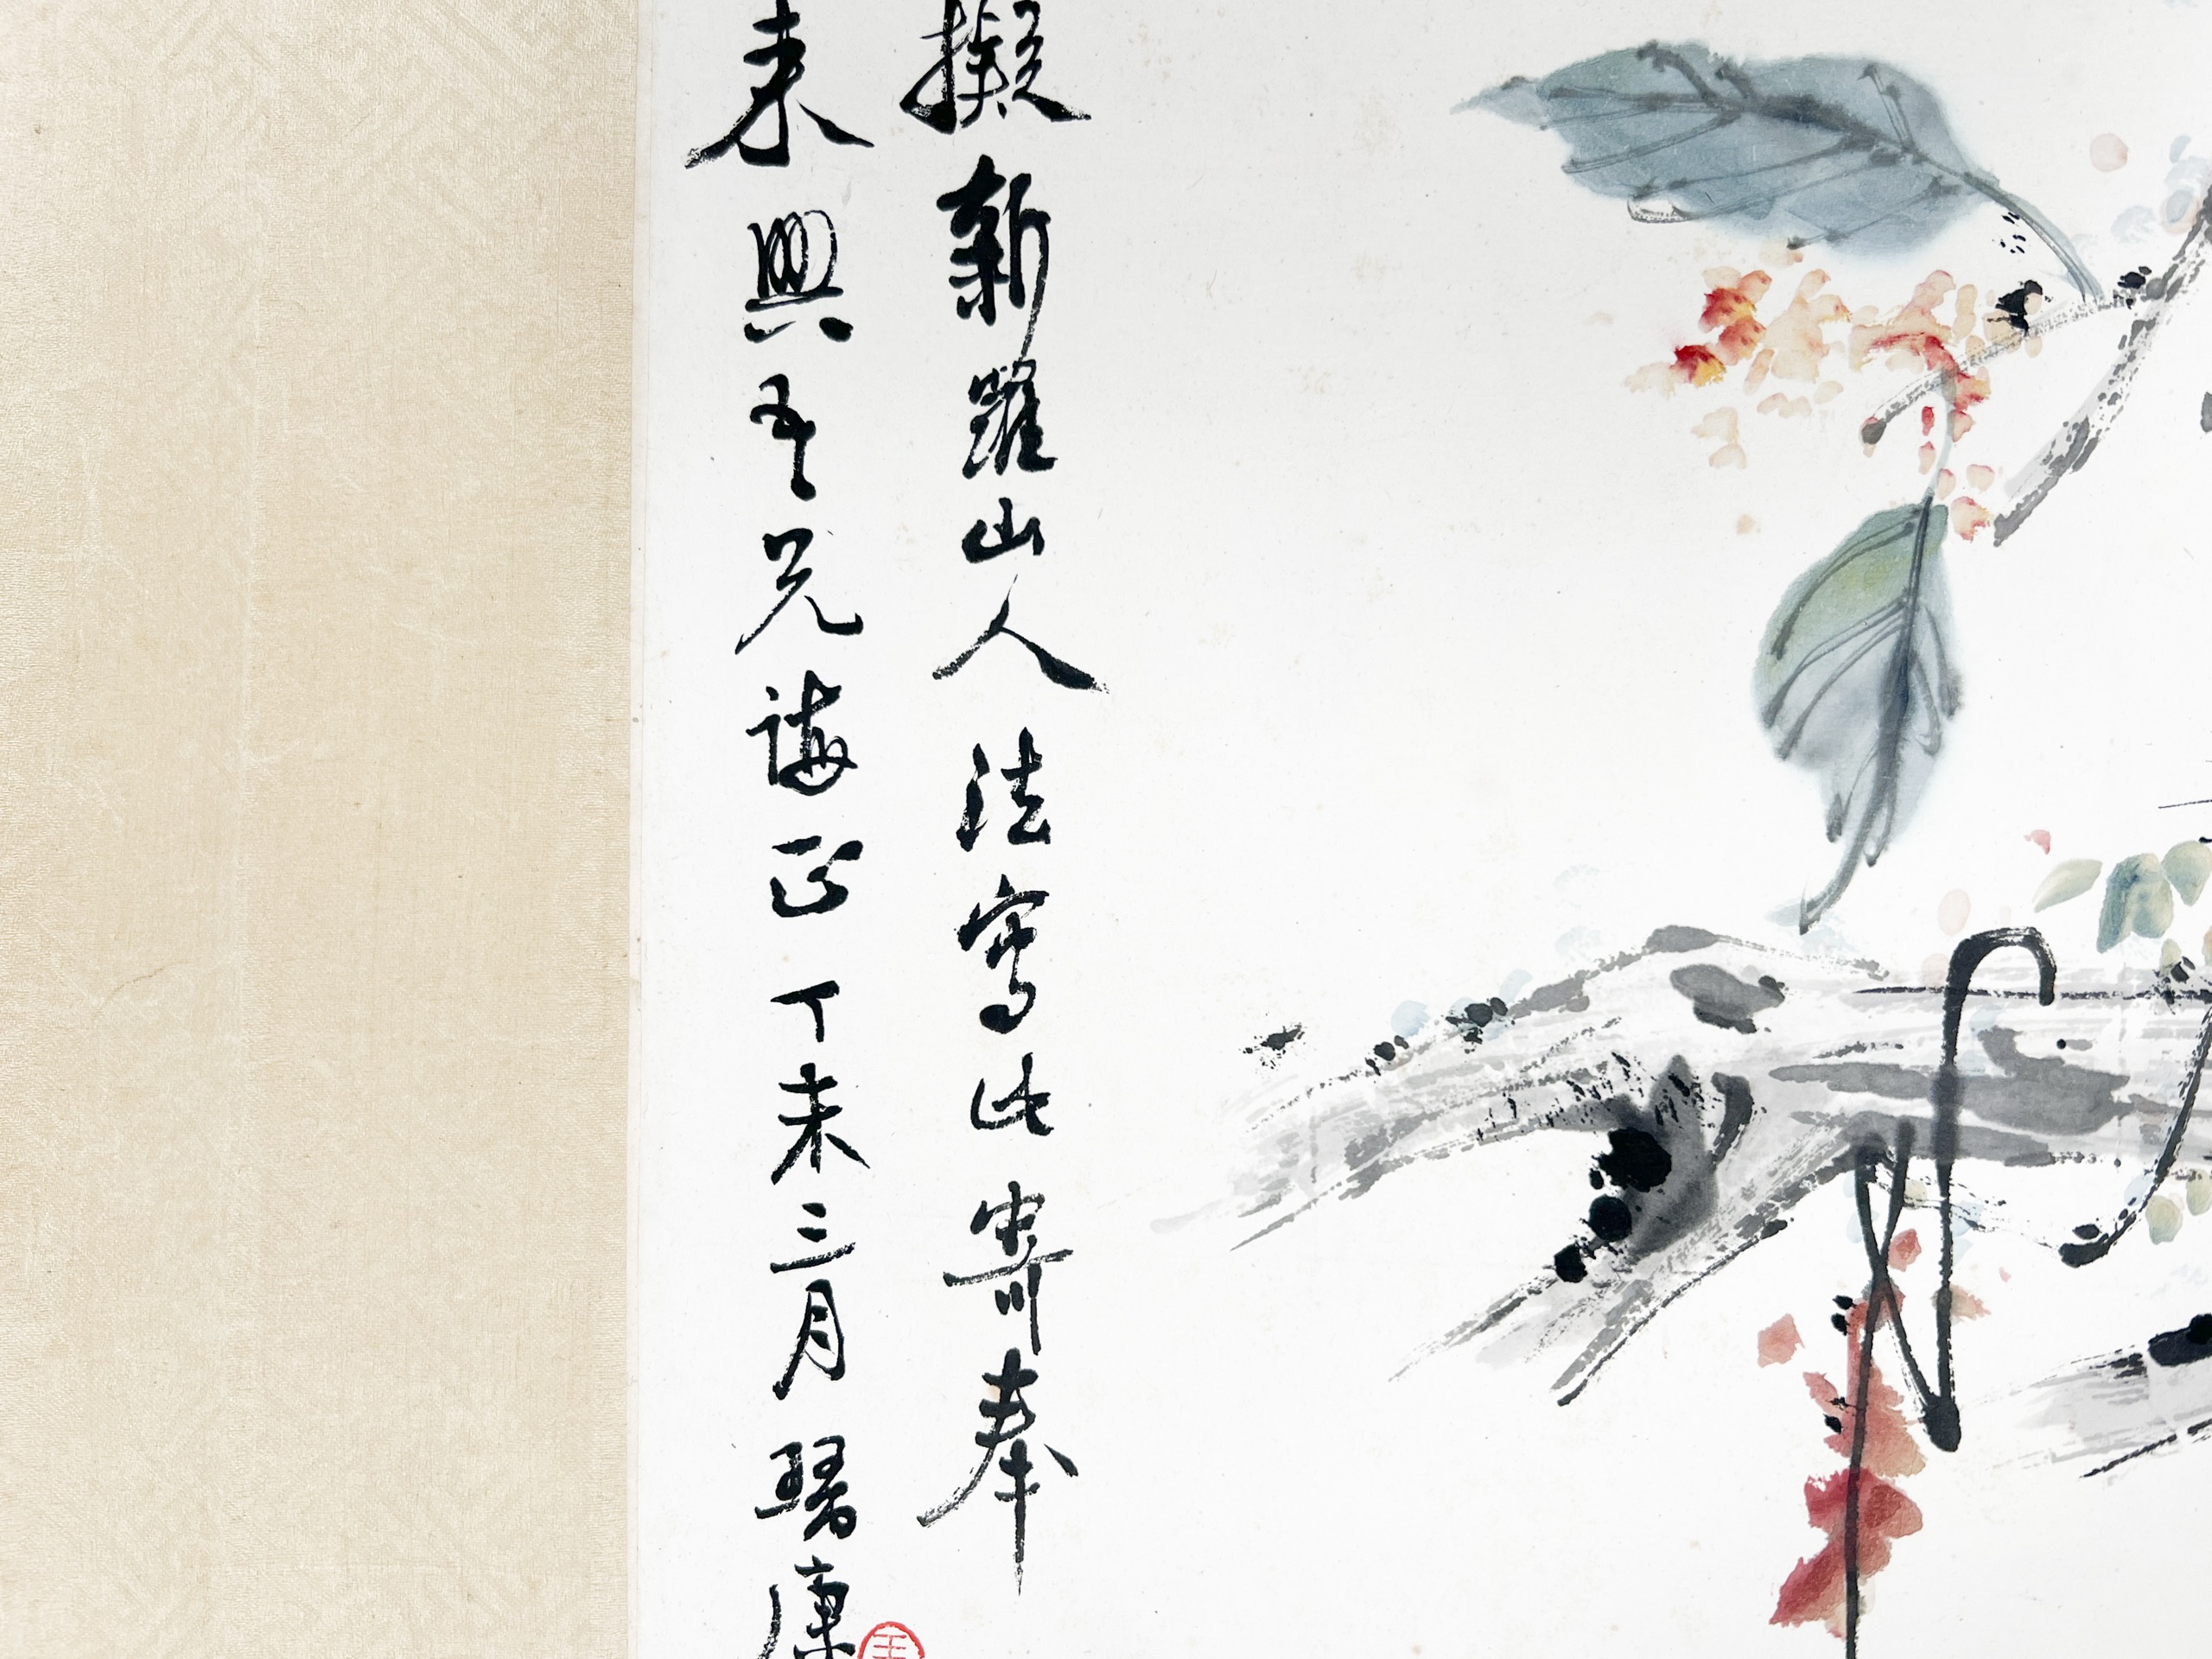 擬新羅山人法寫此寄奉
來興吾兄誨正丁未三月曙康